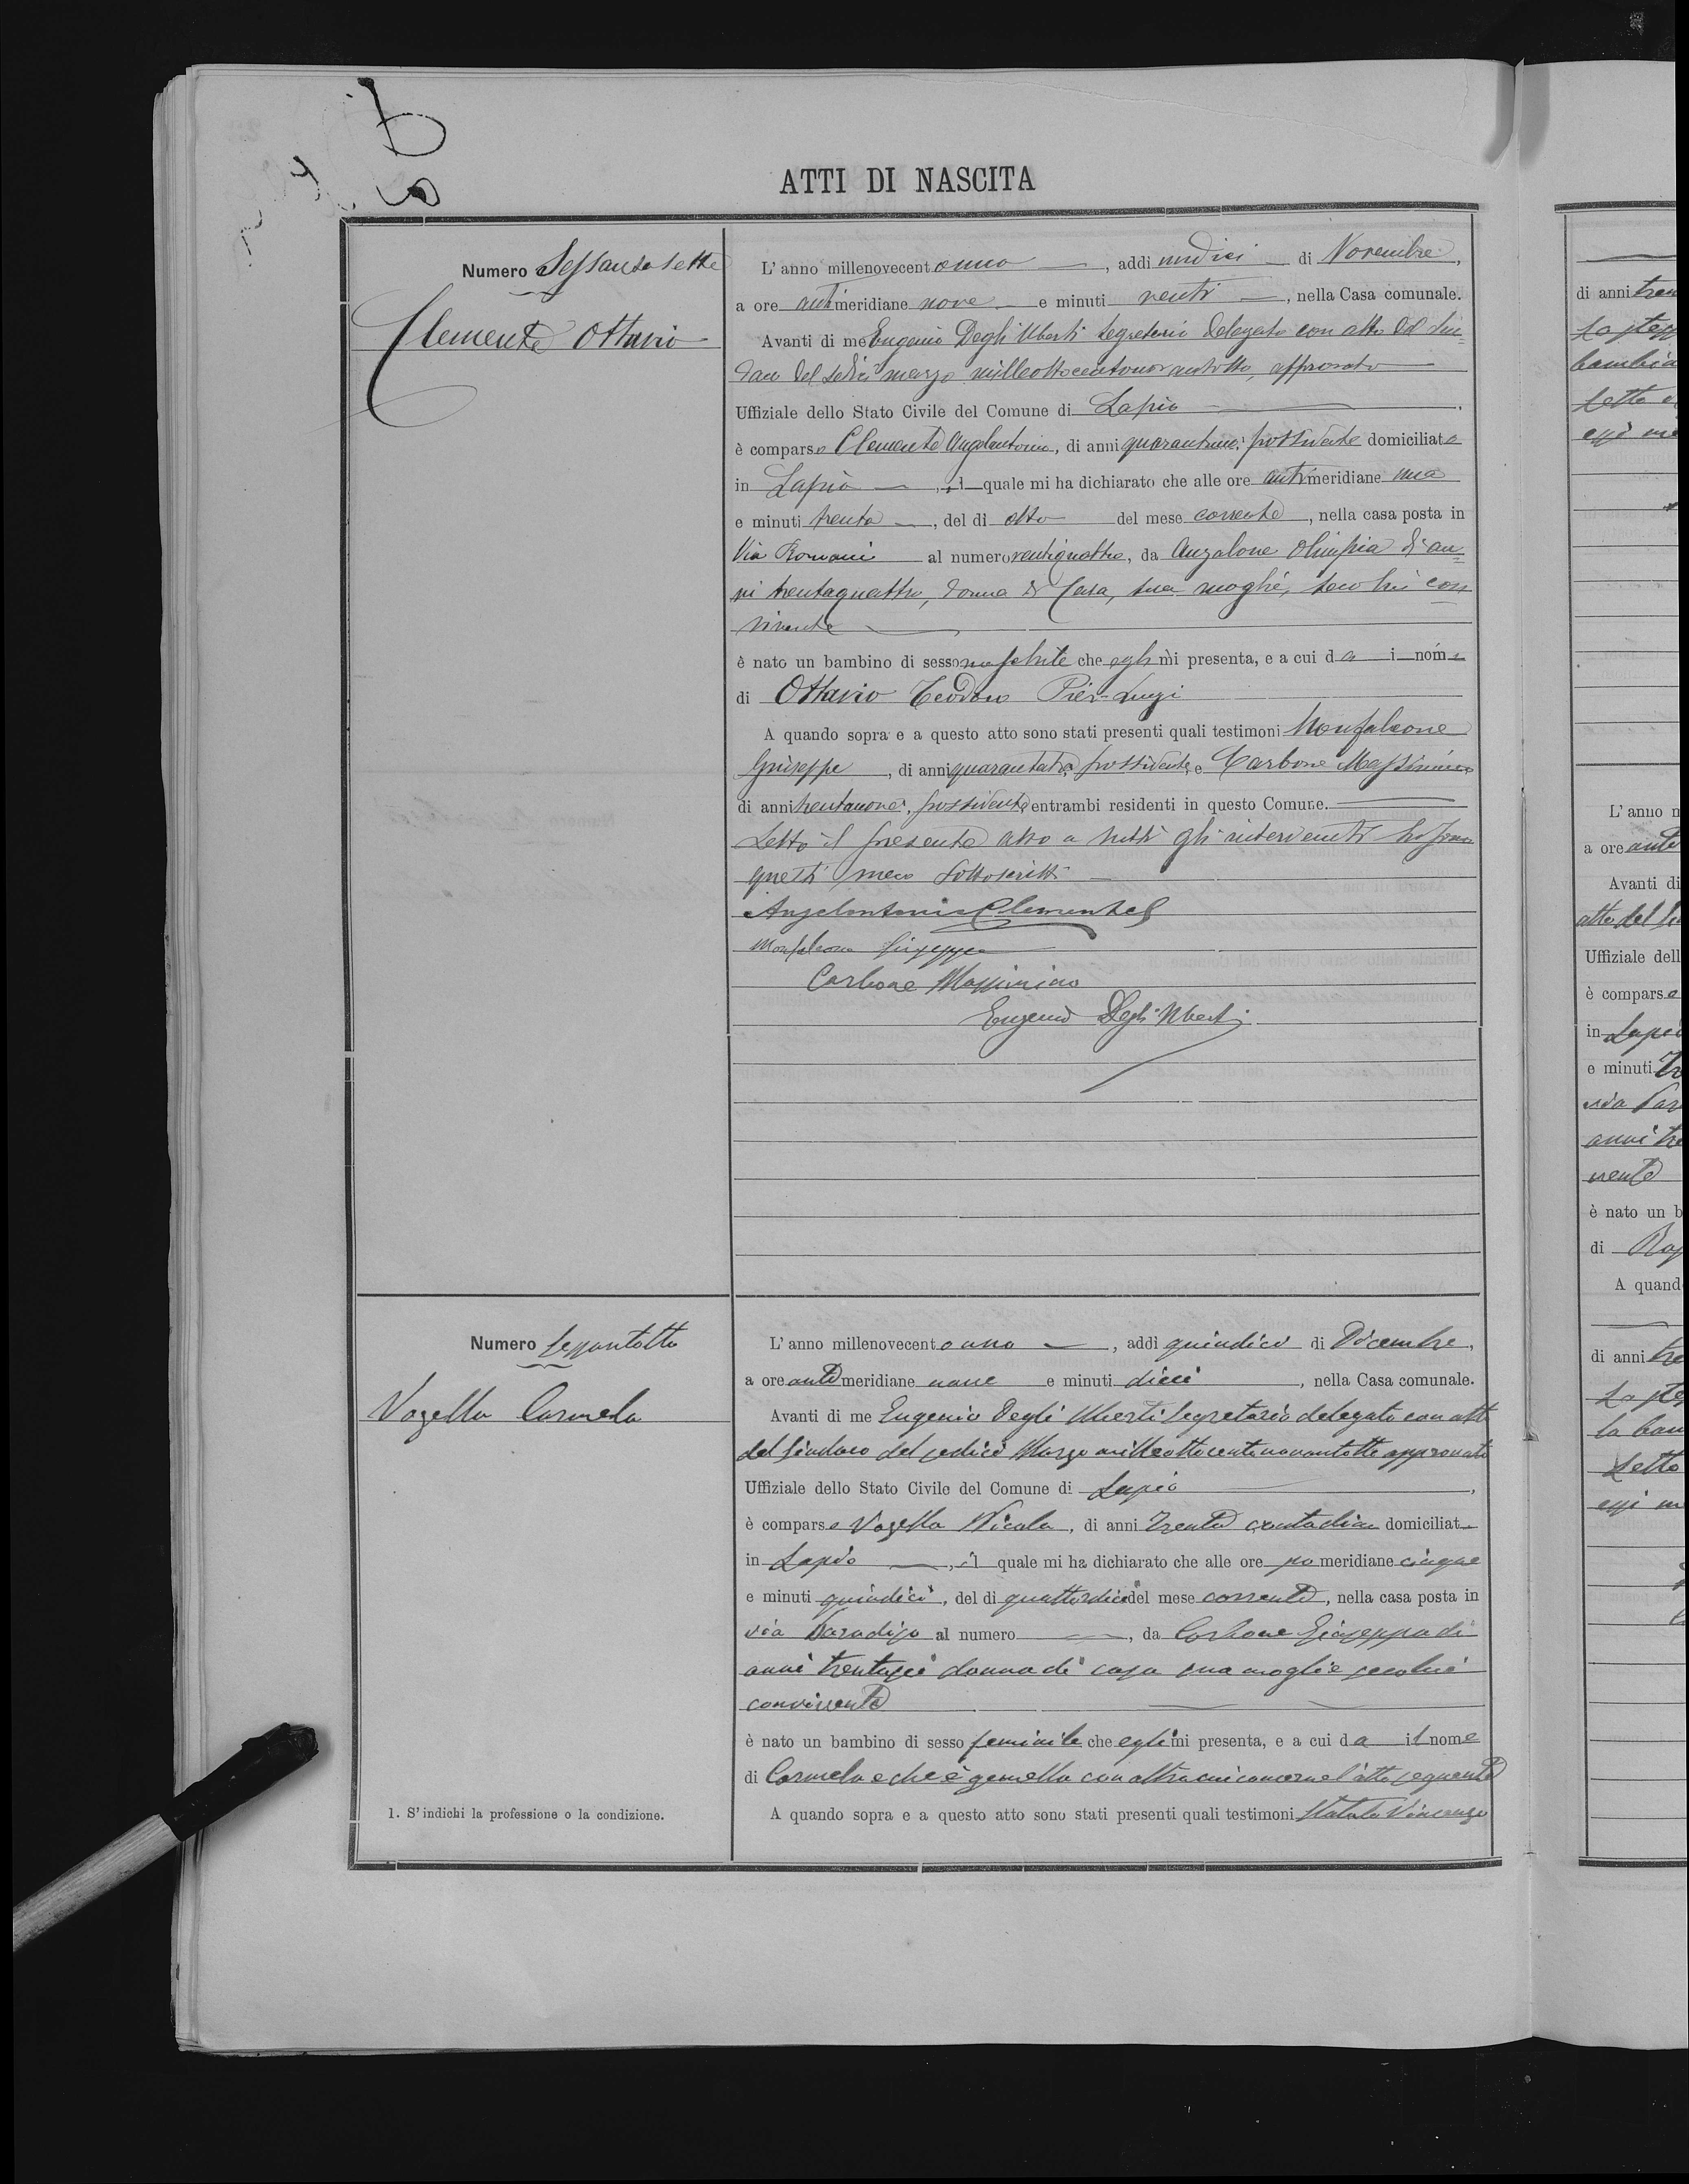 ATTI DI NASCITA
Numero Sessantasette
Clemente Ottavio
L'anno millenovecentouno, addì undici di Novembre,
a ore antimeridiane nove e minuti venti, nella Casa comunale.
Avanti di me Eugenio Degli Uberti Segretario delegato con atto del Sin=
daco del sedici marzo milleottocentonovantotto, approvato
Uffiziale dello Stato Civile del Comune di Lapio.
è comparso Clemente Angelantonio, di anni quarantuno, possidente domiciliato
in Lapio, il quale mi ha dichiarato che alle ore antimeridiane una
e minuti trenta, del dì otto del mese corrente, nella casa posta in
Via Romani al numero ventiquattro, da Anzalone Olimpia di an=
ni trentaquattro, donna di Casa, sua moglie, seco lui con
vivente
è nato un bambino di sesso maschile che egli mi presenta, e a cui da i nomi
di Ottavio Teodoro Pier-Luigi
A quando sopra e a questo atto sono stati presenti quali testimoni Monfalcone
Giuseppe, di anni quarantatre, possidente, e Carbone Massimino
di anni trentanove, possidente, entrambi residenti in questo Comune.
Letto il presente atto a tutti gli intervenuti
questi meco sottoscritti
Angelantonio Clemente
Monfalcone Giuseppe
Carbone Massimino
Eugenio Degli Uberti
Numero Sessantotto
Vozella Carmela
L'anno millenovecentouno, addì quindici di Dicembre,
a ore antemeridiane nove e minuti dieci, nella Casa comunale.
Avanti di me Eugenio Degli Uberti Segretario delegato con atto
del Sindaco del sedici Marzo milleottocentonovantotto approvato
Uffiziale dello Stato Civile del Comune di Lapio,
è comparso Vozella Nicola, di anni trenta contadino domiciliat
in Lapio, il quale mi ha dichiarato che alle ore pomeridiane cinque
e minuti quindici, del dì quattordici del mese corrente, nella casa posta in
via Paradiso al numero, da Carbone Giuseppa di
anni trentasei donna di casa sua moglie secolui
convivente
è nato un bambino di sesso feminile che egli mi presenta, e a cui da il nome
di Carmela e che è gemella con altra cui concerne l'atto seguente
A quando sopra e a questo atto sono stati presenti quali testimoni Vincenzo
1. S'indichi la professione o la condizione.
di anni
L'anno
a ore ante
Avanti di
Uffiziale dell
è comparso
in Lapio
e minuti
è nato un b
di
A quand
di anni